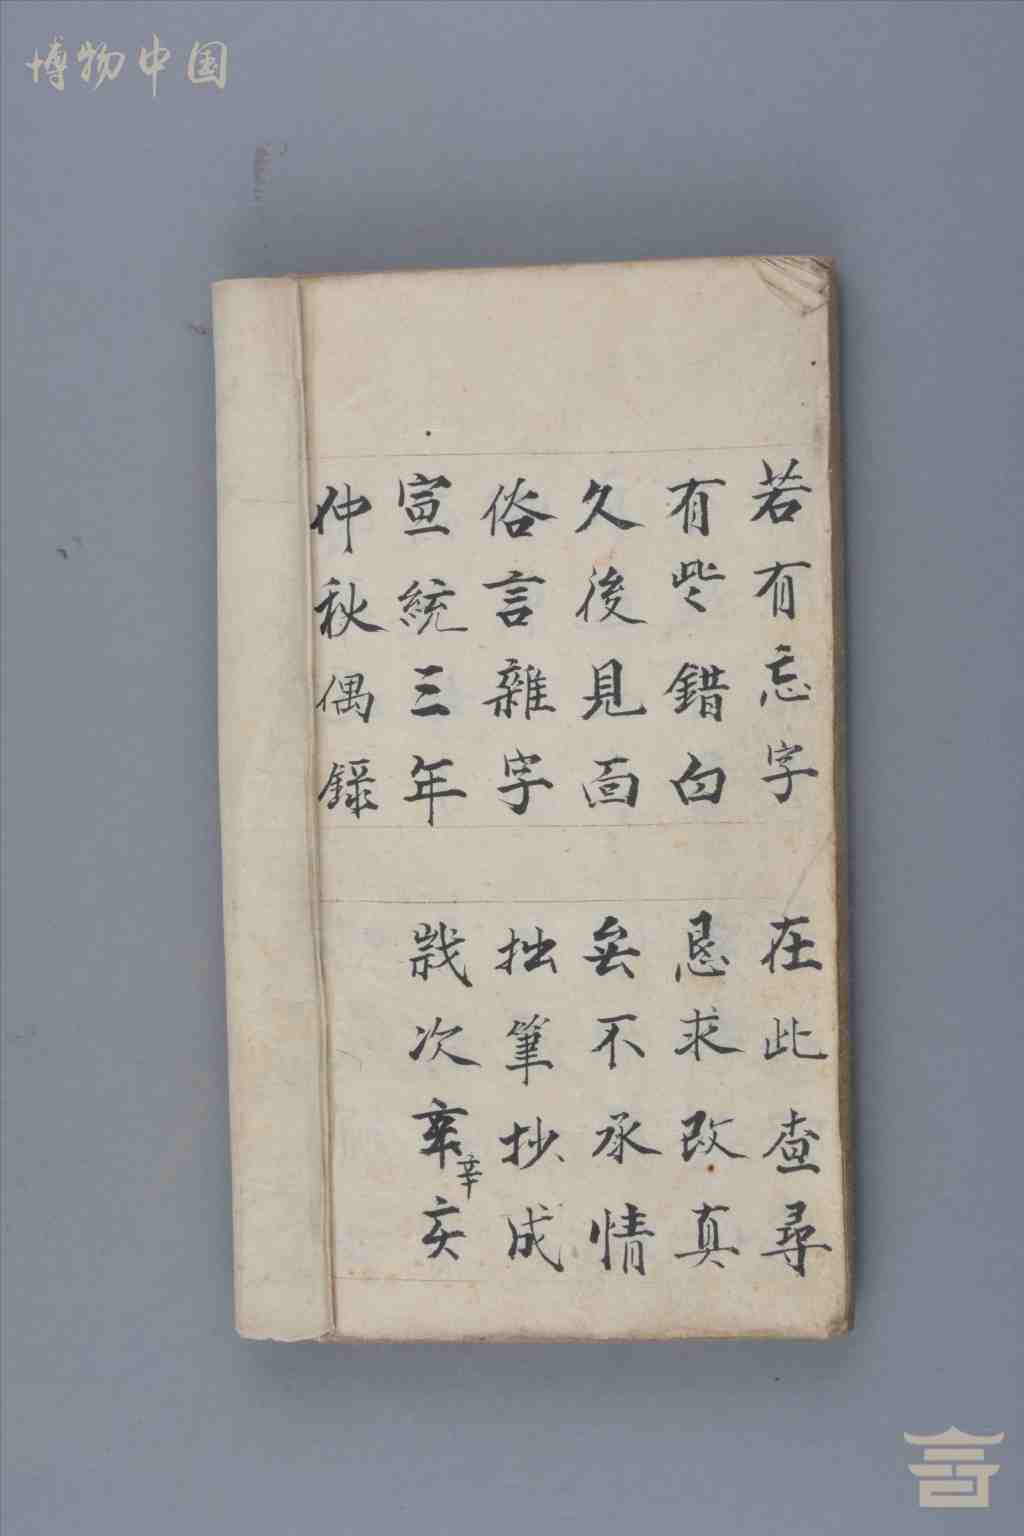 博物中国
若有忘字　在此查尋
有些錯白　恳求改真
久後見面　無不承情
俗言雜字　拙筆抄成
宣統三年　歲次辛亥
辛
仲秋偶錄